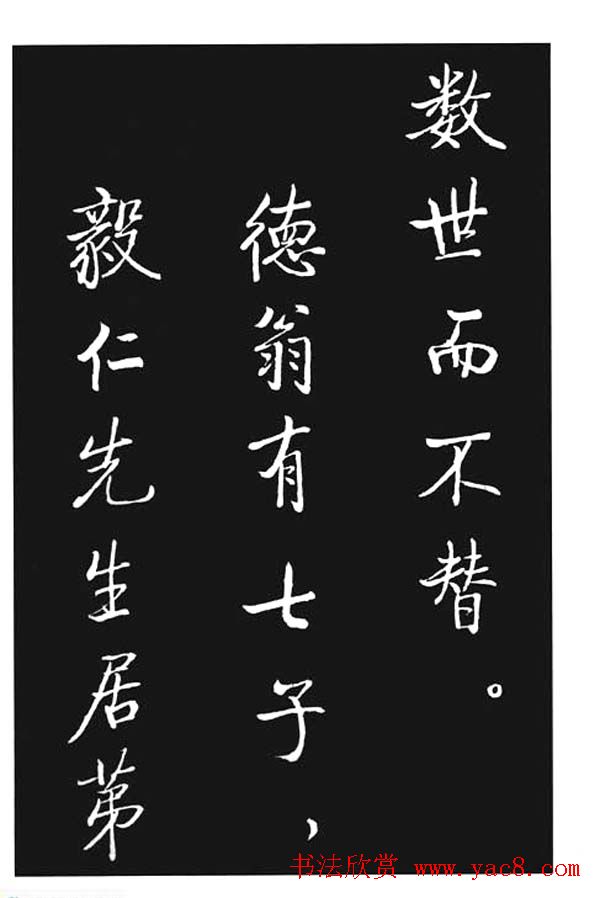 数世而不替。
德翁有七子，
毅仁先生居苐
书法欣赏 www.yac8.com